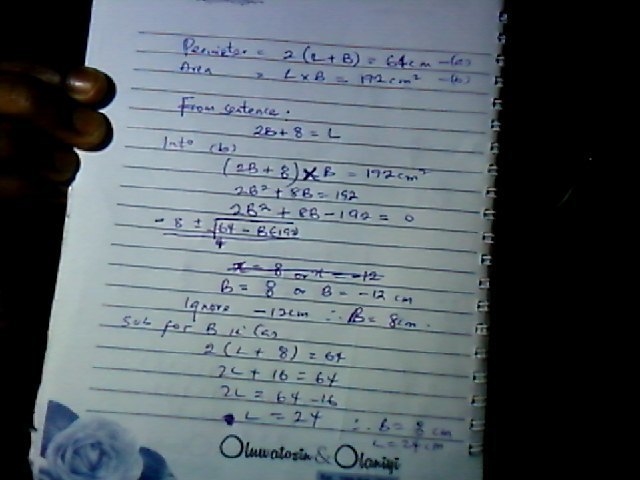 Perimeter = 2(L+B) = 64cm -(a)
Area = L×B = 192cm² -(b)
From sentence.
2B+8 = L
Into (b)
(2B+8)×B = 192cm²
2B²+8B=192
2B²+8B-192=0
-8 ± √64-8(-192)
4
x=8 or x=-12
B= 8 or B=-12 cm
Ignore -12cm ∴ B=8cm.
Sub for B in (a)
2(L+8)=64
2L+16=64
2L=64-16
L=24 ∴ B=8cm
L=24cm
Oluwatosin & Olaniyi